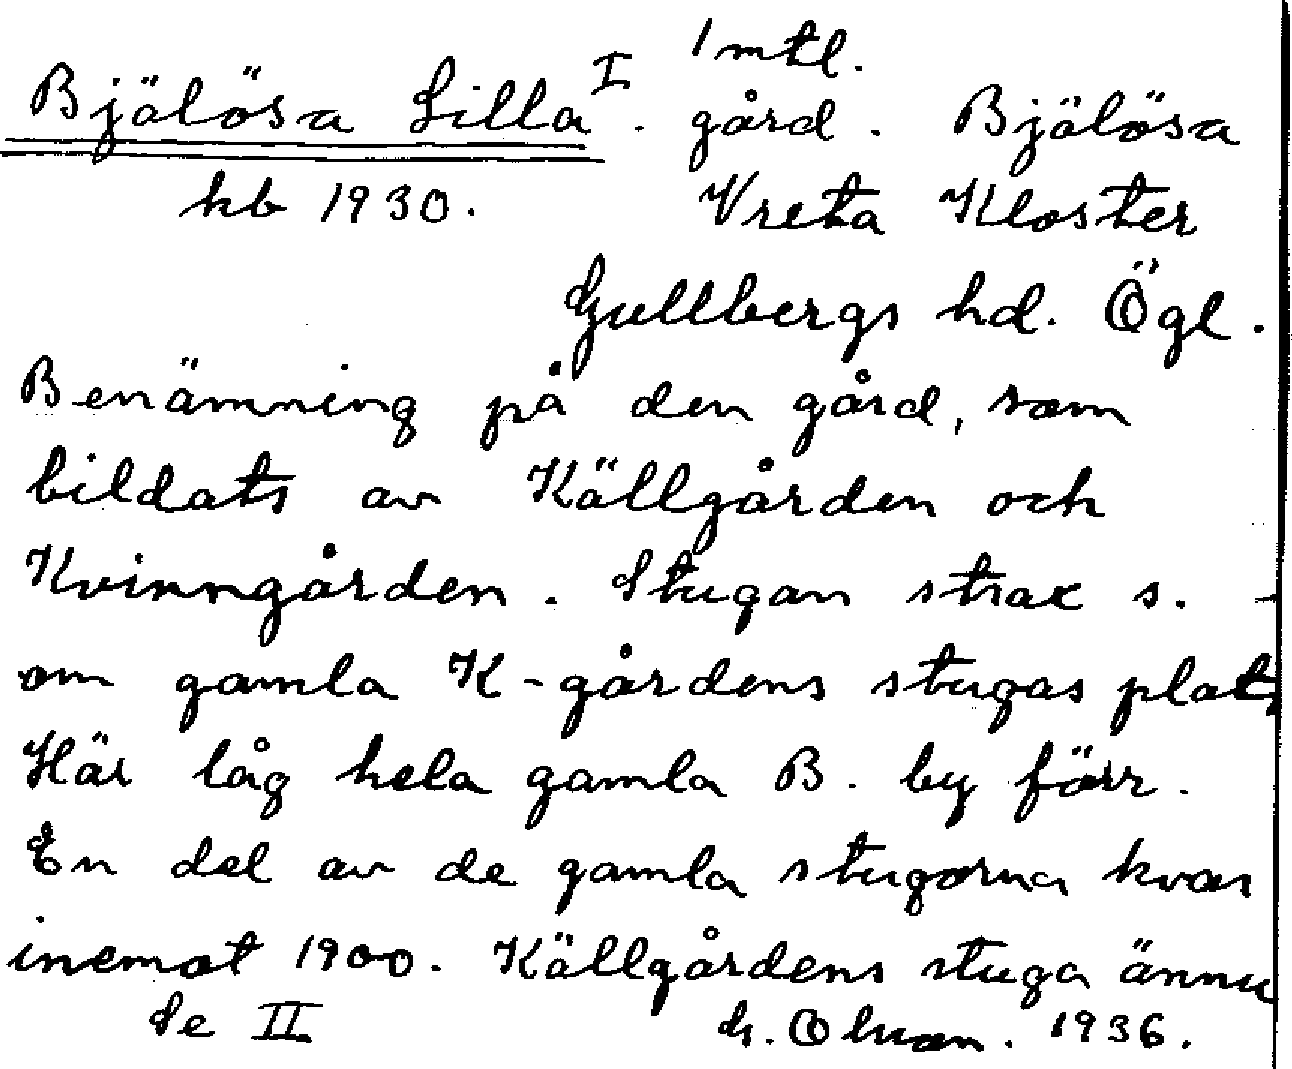 1 mtl.
Bjälösa Lilla I. gård. Bjälösa
kb 1930. Vreta Kloster
Gullbergs hd. Ögl.
Benämning på den gård, som
bildats av Källgården och
Kvinngården. Stugan strax s.
om gamla K-gårdens stugas plats
Här låg hela gamla B. by förr.
En del av de gamla stugorna kvar
inemot 1900. Källgårdens stuga ännu
Se II 1936.